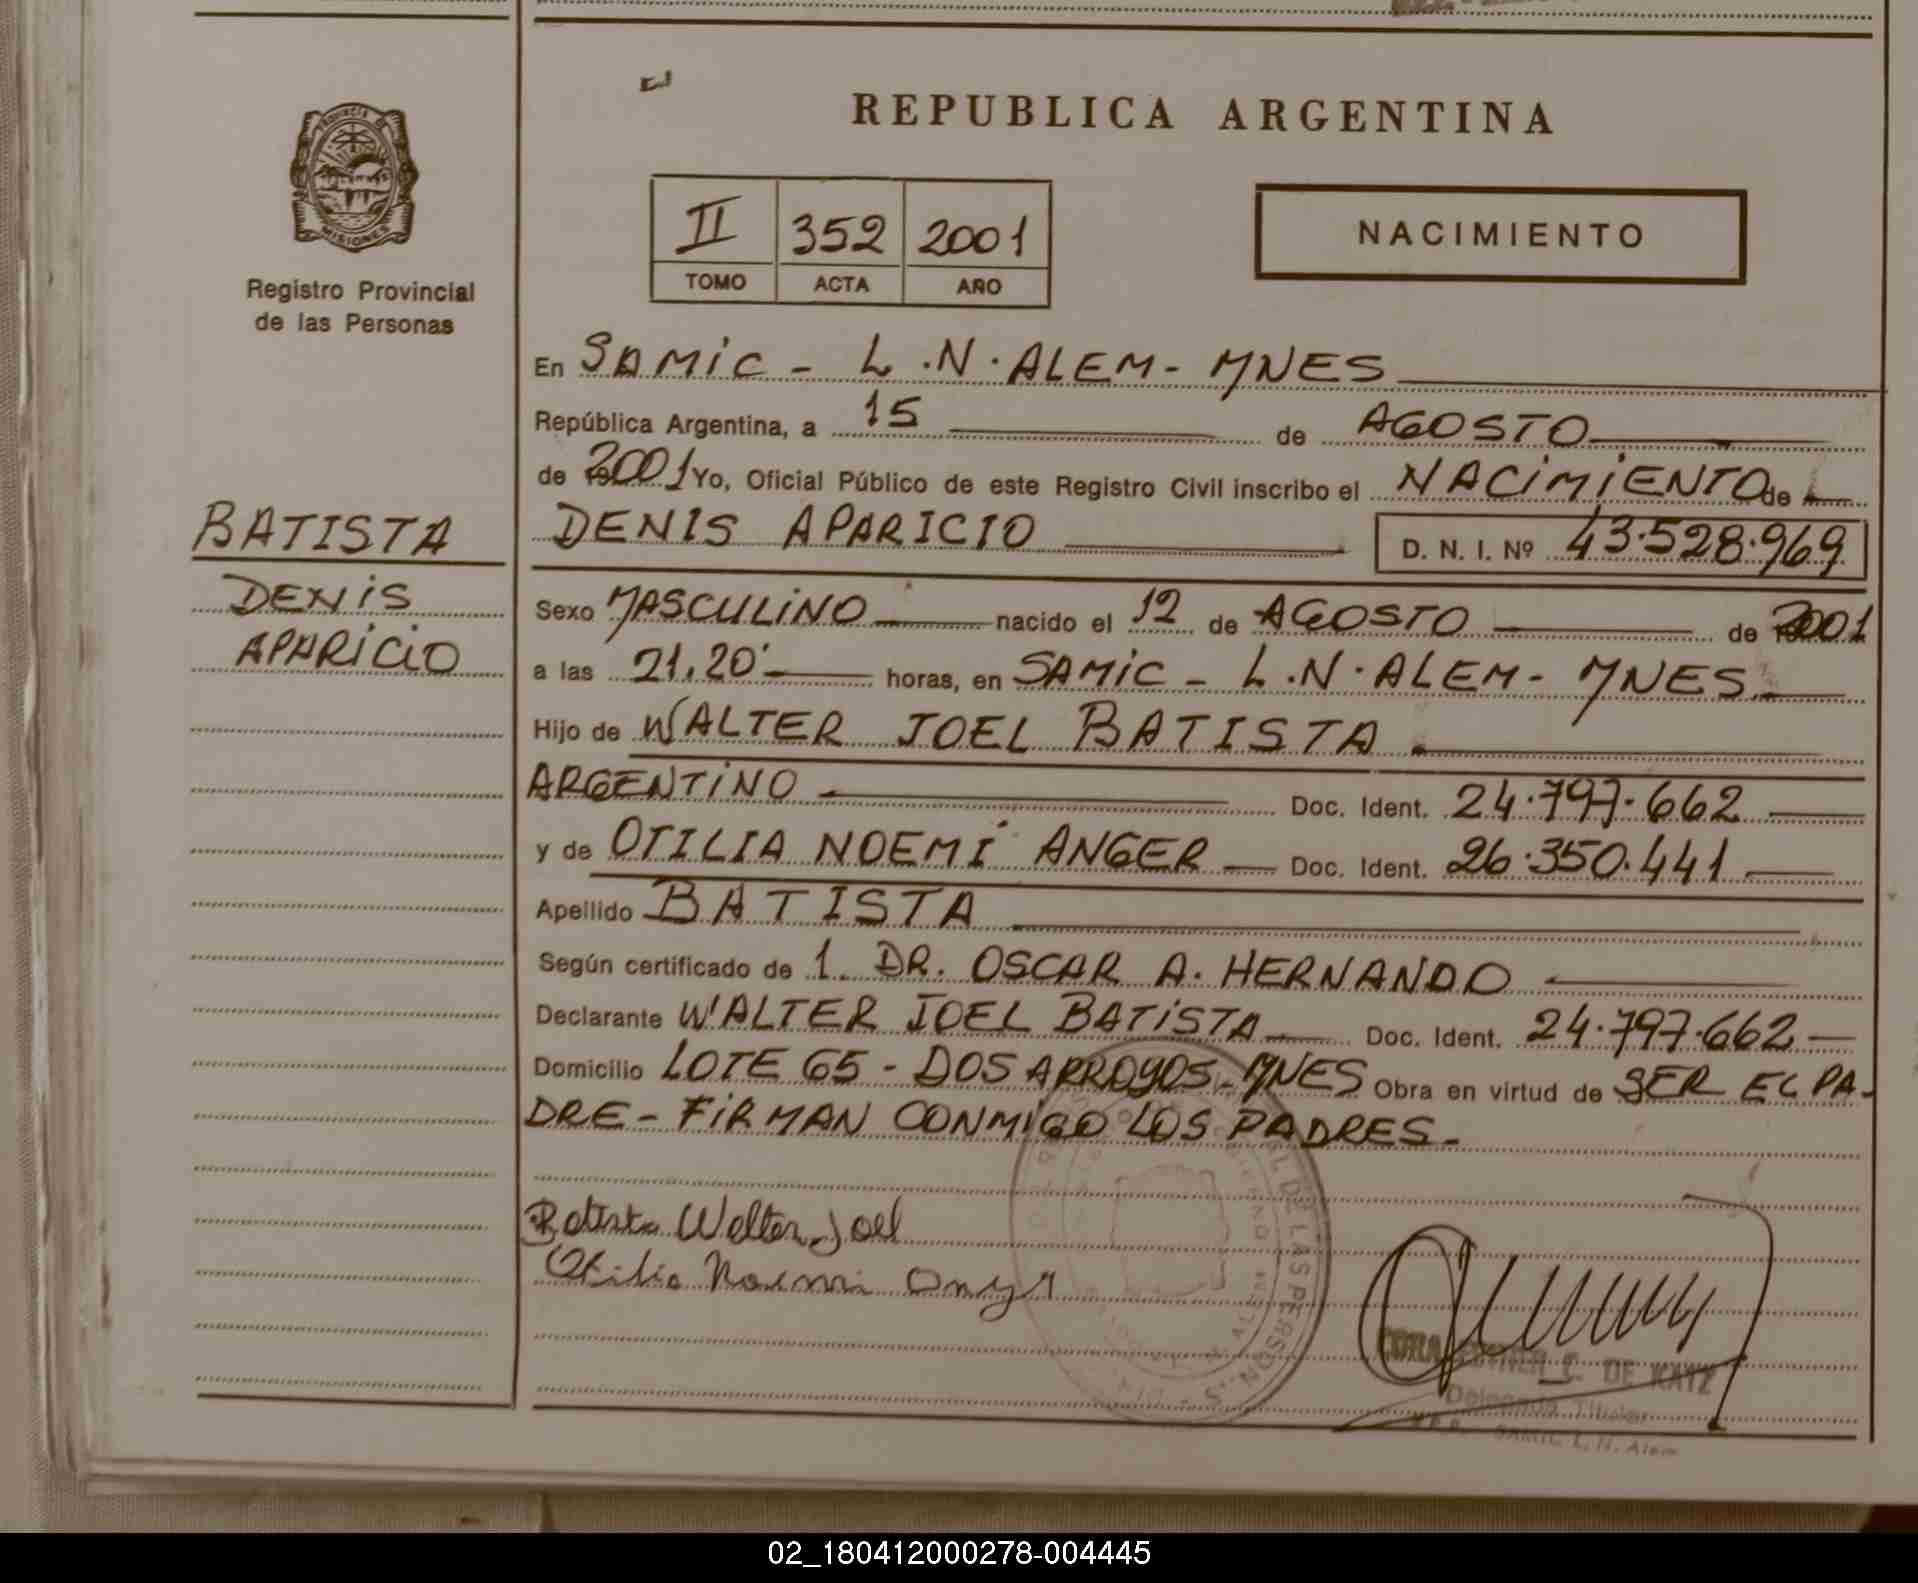 REPUBLICA ARGENTINA
PROVINCIA DE
MISIONES
Registro Provincial
de las Personas
II 352 2001
TOMO ACTA AÑO
NACIMIENTO
En SAMIC - L.N.ALEM - MNES
República Argentina, a 15 de AGOSTO
de 2001 Yo, Oficial Público de este Registro Civil inscribo el NACIMIENTO de
BATISTA
DENIS
APARICIO
DENIS APARICIO D. N. I. Nº 43.528.969
Sexo MASCULINO nacido el 12 de AGOSTO de 2001
a las 21.20' horas, en SAMIC - L.N.ALEM - MNES
Hijo de WALTER JOEL BATISTA
ARGENTINO Doc. Ident. 24.797.662
y de OTILIA NOEMI ANGER Doc. Ident. 26.350.441
Apellido BATISTA
Según certificado de 1. DR. OSCAR A. HERNANDO
Declarante WALTER JOEL BATISTA Doc. Ident. 24.797.662
Domicilio LOTE 65 - DOS ARROYOS - MNES Obra en virtud de SER EL PA-
DRE - FIRMAN CONMIGO LOS PADRES.
Batista Walter Joel
Otilia Noemi
DE LAS PERSONAS
DE KATZ
Titular
SAMIC L. N. Alem
02_180412000278-004445